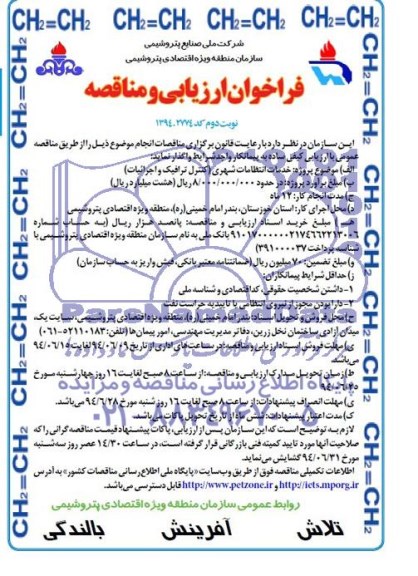 CH2=CH2 CH2=CH2 CH2=CH2 CH2=CH2
شرکت ملی صنایع پتروشیمی
سازمان منطقه ویژه اقتصادی پتروشیمی
فراخوان ارزیابی و مناقصه
نوبت دوم کد ۱۳۹۴.۲۷۷۴
این سازمان در نظر دارد با رعایت قانون برگزاری مناقصات انجام موضوع ذیل را از طریق مناقصه
عمومی با ارزیابی کیفی ساده به پیمانکار واجد شرایط واگذار نماید:
الف) موضوع پروژه: خدمات انتظامات شهری (کنترل ترافیک و اجرائیات)
ب) مبلغ برآورد پروژه: در حدود ۸/۰۰۰/۰۰۰/۰۰۰ ریال (هشت میلیارد ریال)
ج) مدت انجام کار: ۱۲ ماه
د) محل اجرای کار: استان خوزستان، بندر امام خمینی(ره)، منطقه ویژه اقتصادی پتروشیمی
ه) مبلغ خرید اسناد ارزیابی و مناقصه: پانصد هزار ریال (به حساب شماره
بانک ملی به نام سازمان منطقه ویژه اقتصادی پتروشیمی با
شناسه پرداخت ۳۹۱۰۰۰۰۳۷)
و) مبلغ تضمین: ۷۰ میلیون ریال (ضمانتنامه معتبر بانکی، فیش واریز به حساب سازمان)
ز) حداقل شرایط پیمانکاران:
۱- داشتن شخصیت حقوقی، کد اقتصادی و شناسه ملی
۲- دارا بودن مجوز از نیروی انتظامی یا تاییدیه حراست نفت
ح) محل فروش و تحویل اسناد: بندر امام خمینی(ره)، منطقه ویژه اقتصادی پتروشیمی، سایت یک،
میدان آزادی، ساختمان نخل زرین، دفاتر مدیریت مهندسی، امور پیمان‌ها (تلفن: ۵۲۱۱۰۱۸۳-۰۶۱)
ی) مهلت فروش اسناد ارزیابی و مناقصه: در ساعت‌های اداری از تاریخ ۹۴/۰۶/۰۹ لغایت ۹۴/۰۶/۱۵
ط) زمان تحویل مدارک ارزیابی و مناقصه: از ساعت ۸ صبح لغایت ۱۶ روز چهارشنبه مورخ
ی) مهلت انصراف پیشنهادات: از ساعت ۸ صبح لغایت ۱۶ روز شنبه مورخ ۹۴/۶/۲۸ می‌باشد.
ک) مدت اعتبار پیشنهادات: شش ماه از تاریخ تحویل پاکات می‌باشد.
لازم به توضیح است که این سازمان پس از ارزیابی، پاکات پیشنهاد قیمت مناقصه‌گرانی را که
صلاحیت آنها مورد تایید کمیته فنی بازرگانی قرار گرفته است، در ساعت ۱۴/۳۰ عصر روز سه‌شنبه
مورخ ۹۴/۰۶/۳۱ گشایش می‌نماید.
اطلاعات تکمیلی مناقصه فوق از طریق وب‌سایت «پایگاه ملی اطلاع رسانی مناقصات کشور» به آدرس
http://iets.mporg.ir و http://www.petzone.ir قابل دسترسی می‌باشد.
روابط عمومی سازمان منطقه ویژه اقتصادی پتروشیمی
تلاش آفرینش بالندگی
پایگاه اطلاع رسانی مناقصه و مزایده